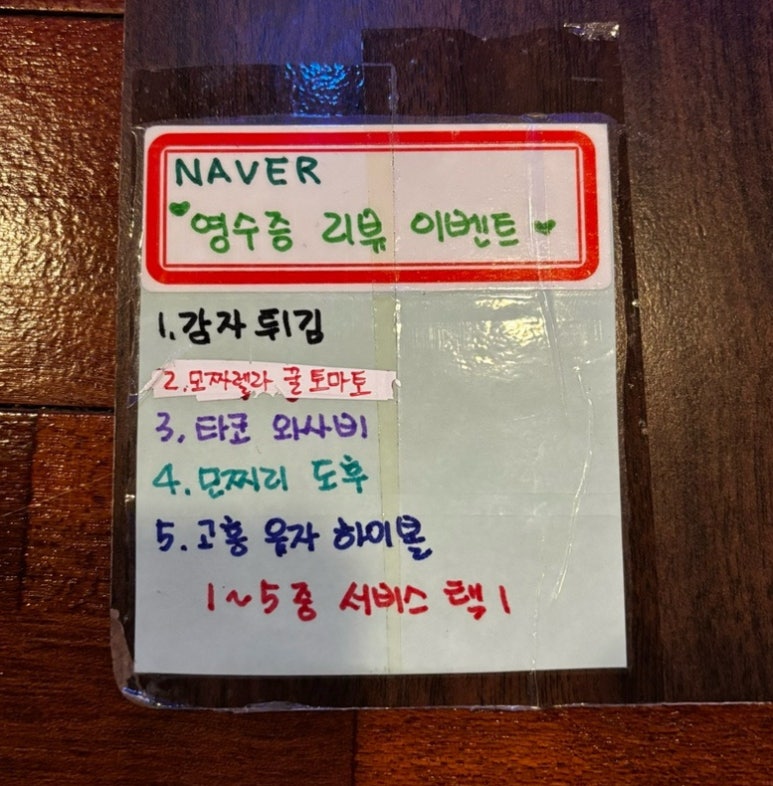 NAVER
영수증 리뷰 이벤트
1. 감자 튀김
2. 모짜렐라 꿀토마토
3. 타코 와사비
4. 모찌리 도후
5. 고흥 유자 하이볼
1~5 중 서비스 택 1